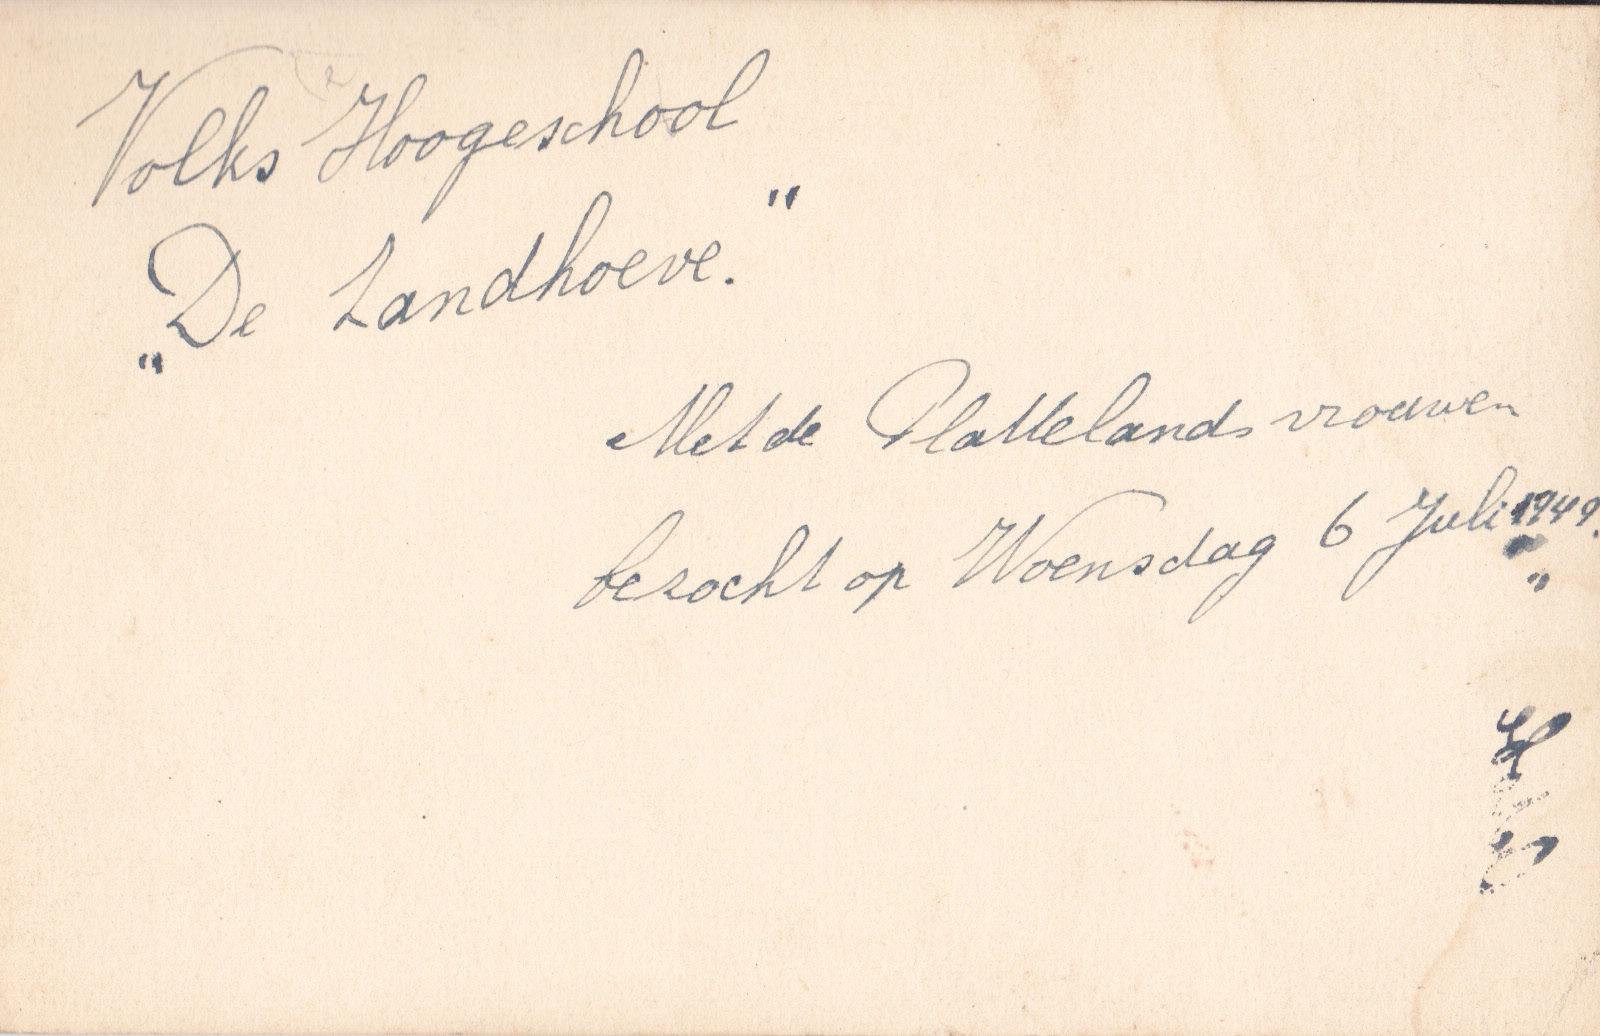 Volks Hoogeschool
„De Landhoeve."
Met de Plattelands vrouwen
bezocht op Woensdag 6 Juli 1949.
"